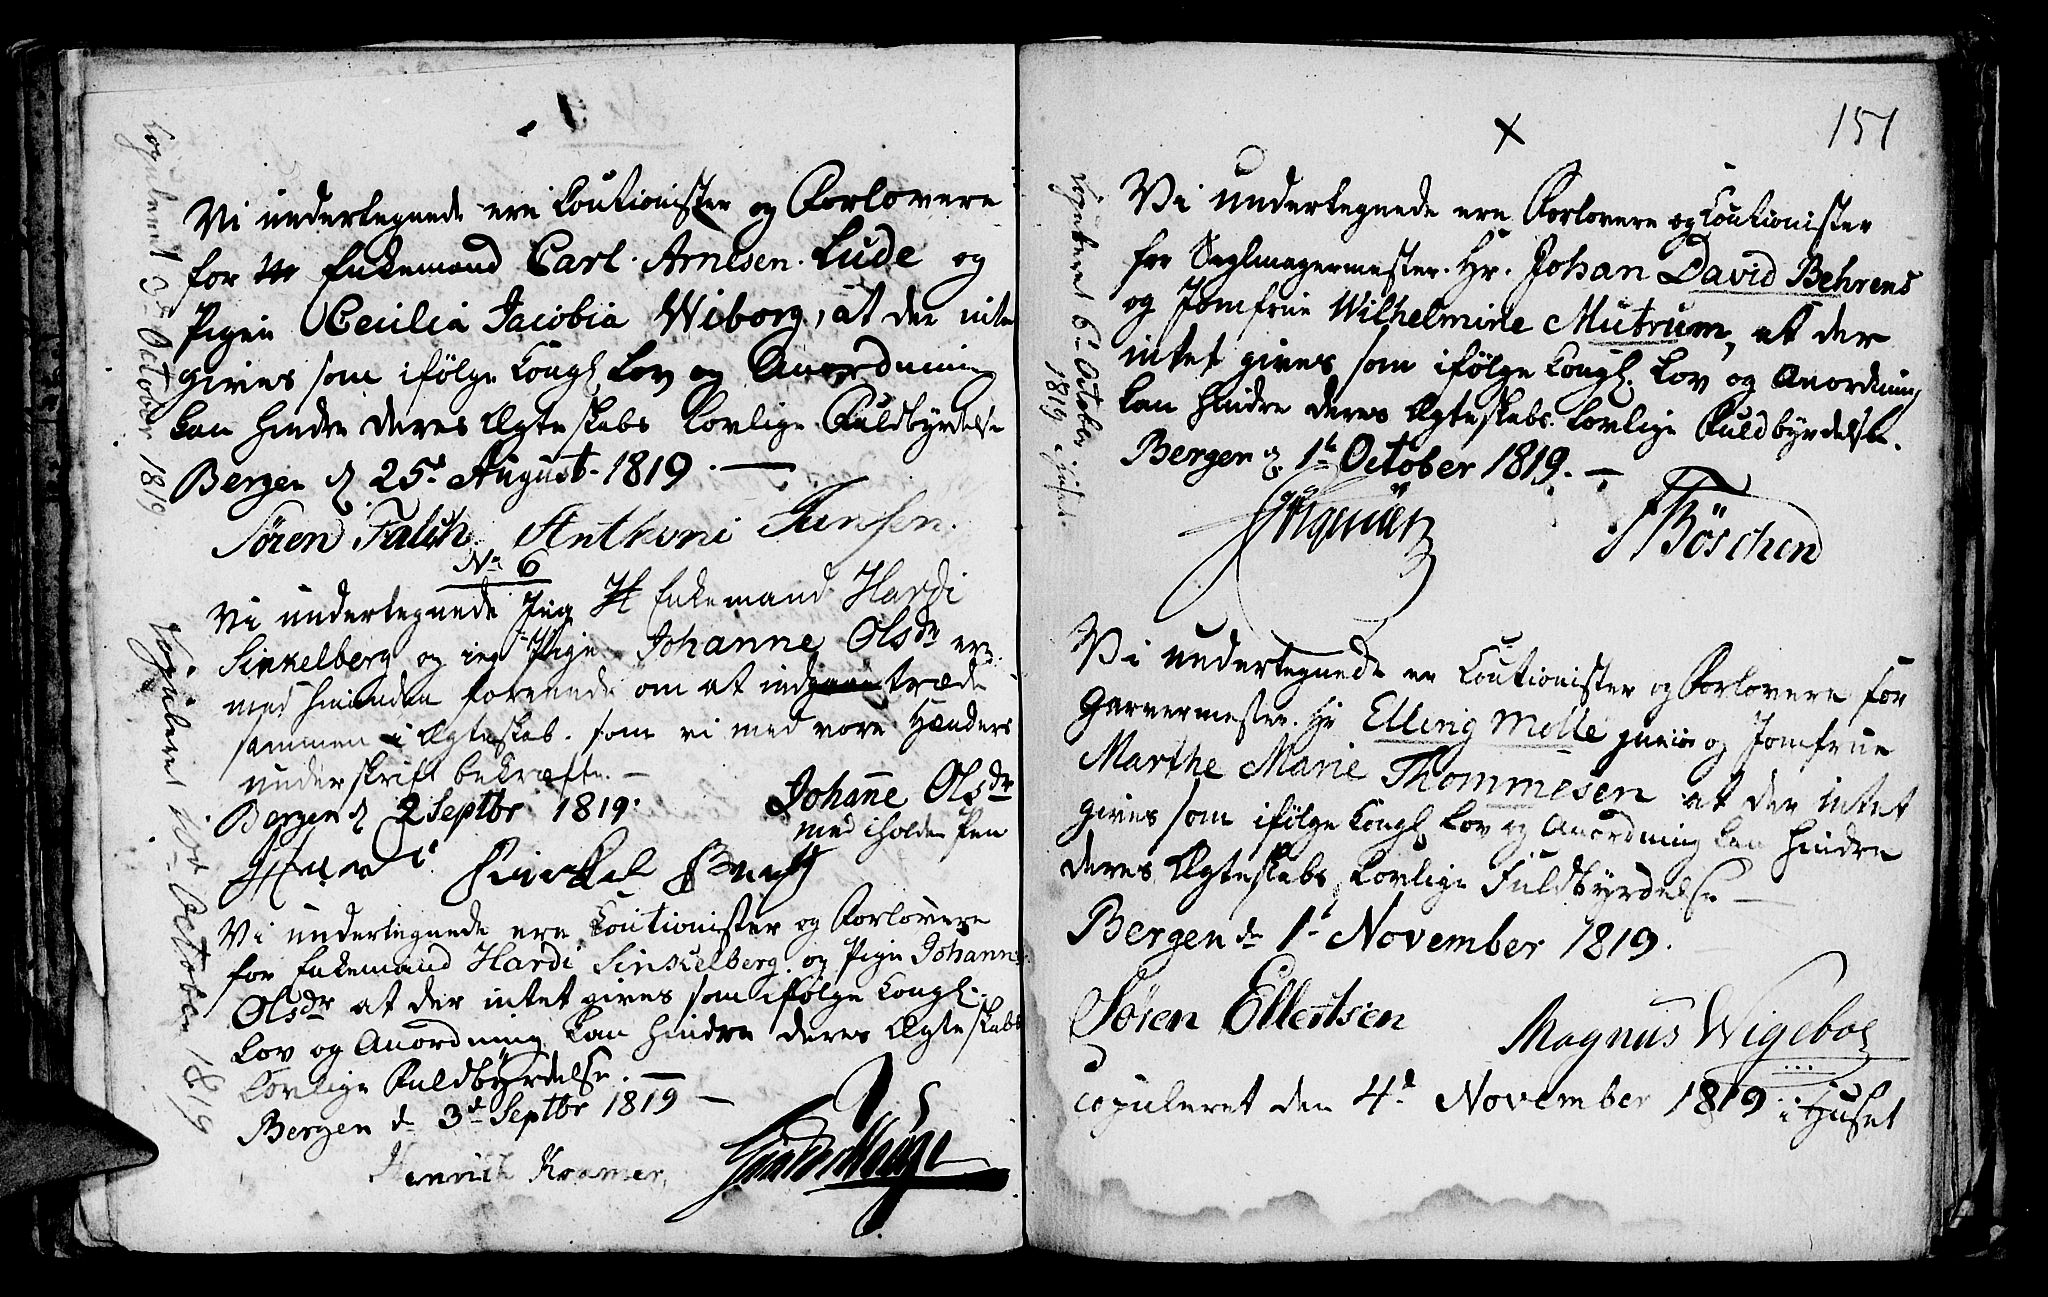 Copuleret 3die October 1819
Vi undertegnede ere Coutionister og Forlovere
for Enkemand Carl Arnesen Lude og
Pigen Cecilia Jacobia Wiborg, at der intet
gives som ifölge Kongl. Lov og Anordning
kan hindre deres Ægteskabs Lovlige Fuldbyrdelse
Bergen d. 25d August 1819.
Sören Falch Anthoni Jansen.
No 6
Vi undertegnede Jeg Enkemand Hardi
Sinkelberg og jeg Pige Johanne Olsdr ere
med hinanden foreenede om at indtræde
sammen i Ægteskab. som vi med vore Hænders
underskrift bekræfte.
Bergen d 2 Septbr 1819.
Johanne Olsdr
med iholden Pen
Copuleret October 1819
Vi undertegnede ere Coutionister og Forlovere
for Enkemand Hardi Sinkelberg og Pige Johanne
Olsdr at der intet gives som ifölge Kongl.
Lov og Anordning kan hindre deres Ægteskabs
Lovlige Fuldbyrdelse.
Bergen d 3d Septbr 1819
Henrich Kramer.
151
Copuleret 6te October
1819 i huset
Vi undertegnede ere Forlovere og Coutionister
for Seglmagermester Hr. Johan David Behrens
og Jomfrue Wilhelmine Mutrum, at der
intet gives som ifölge Kongl. Lov og Anordning
kan hindre deres Ægteskabs Lovlige Fuldbyrdelse.
Bergen d. 1te October 1819.
Böschen
Vi undertegnede er Coutionister og Forlovere for
Garvermester Hr Elling Molle junior og Jomfrue
Marthe Marie Thommesen at der intet
gives som ifölge Kongl Lov og Anordning kan hindre
deres Ægteskabs Lovlige Fuldbyrdelse
Bergen d 1t November 1819.
Sören Ellertsen
Magnus Wigeboe
copuleret den 4d November 1819 i Huset